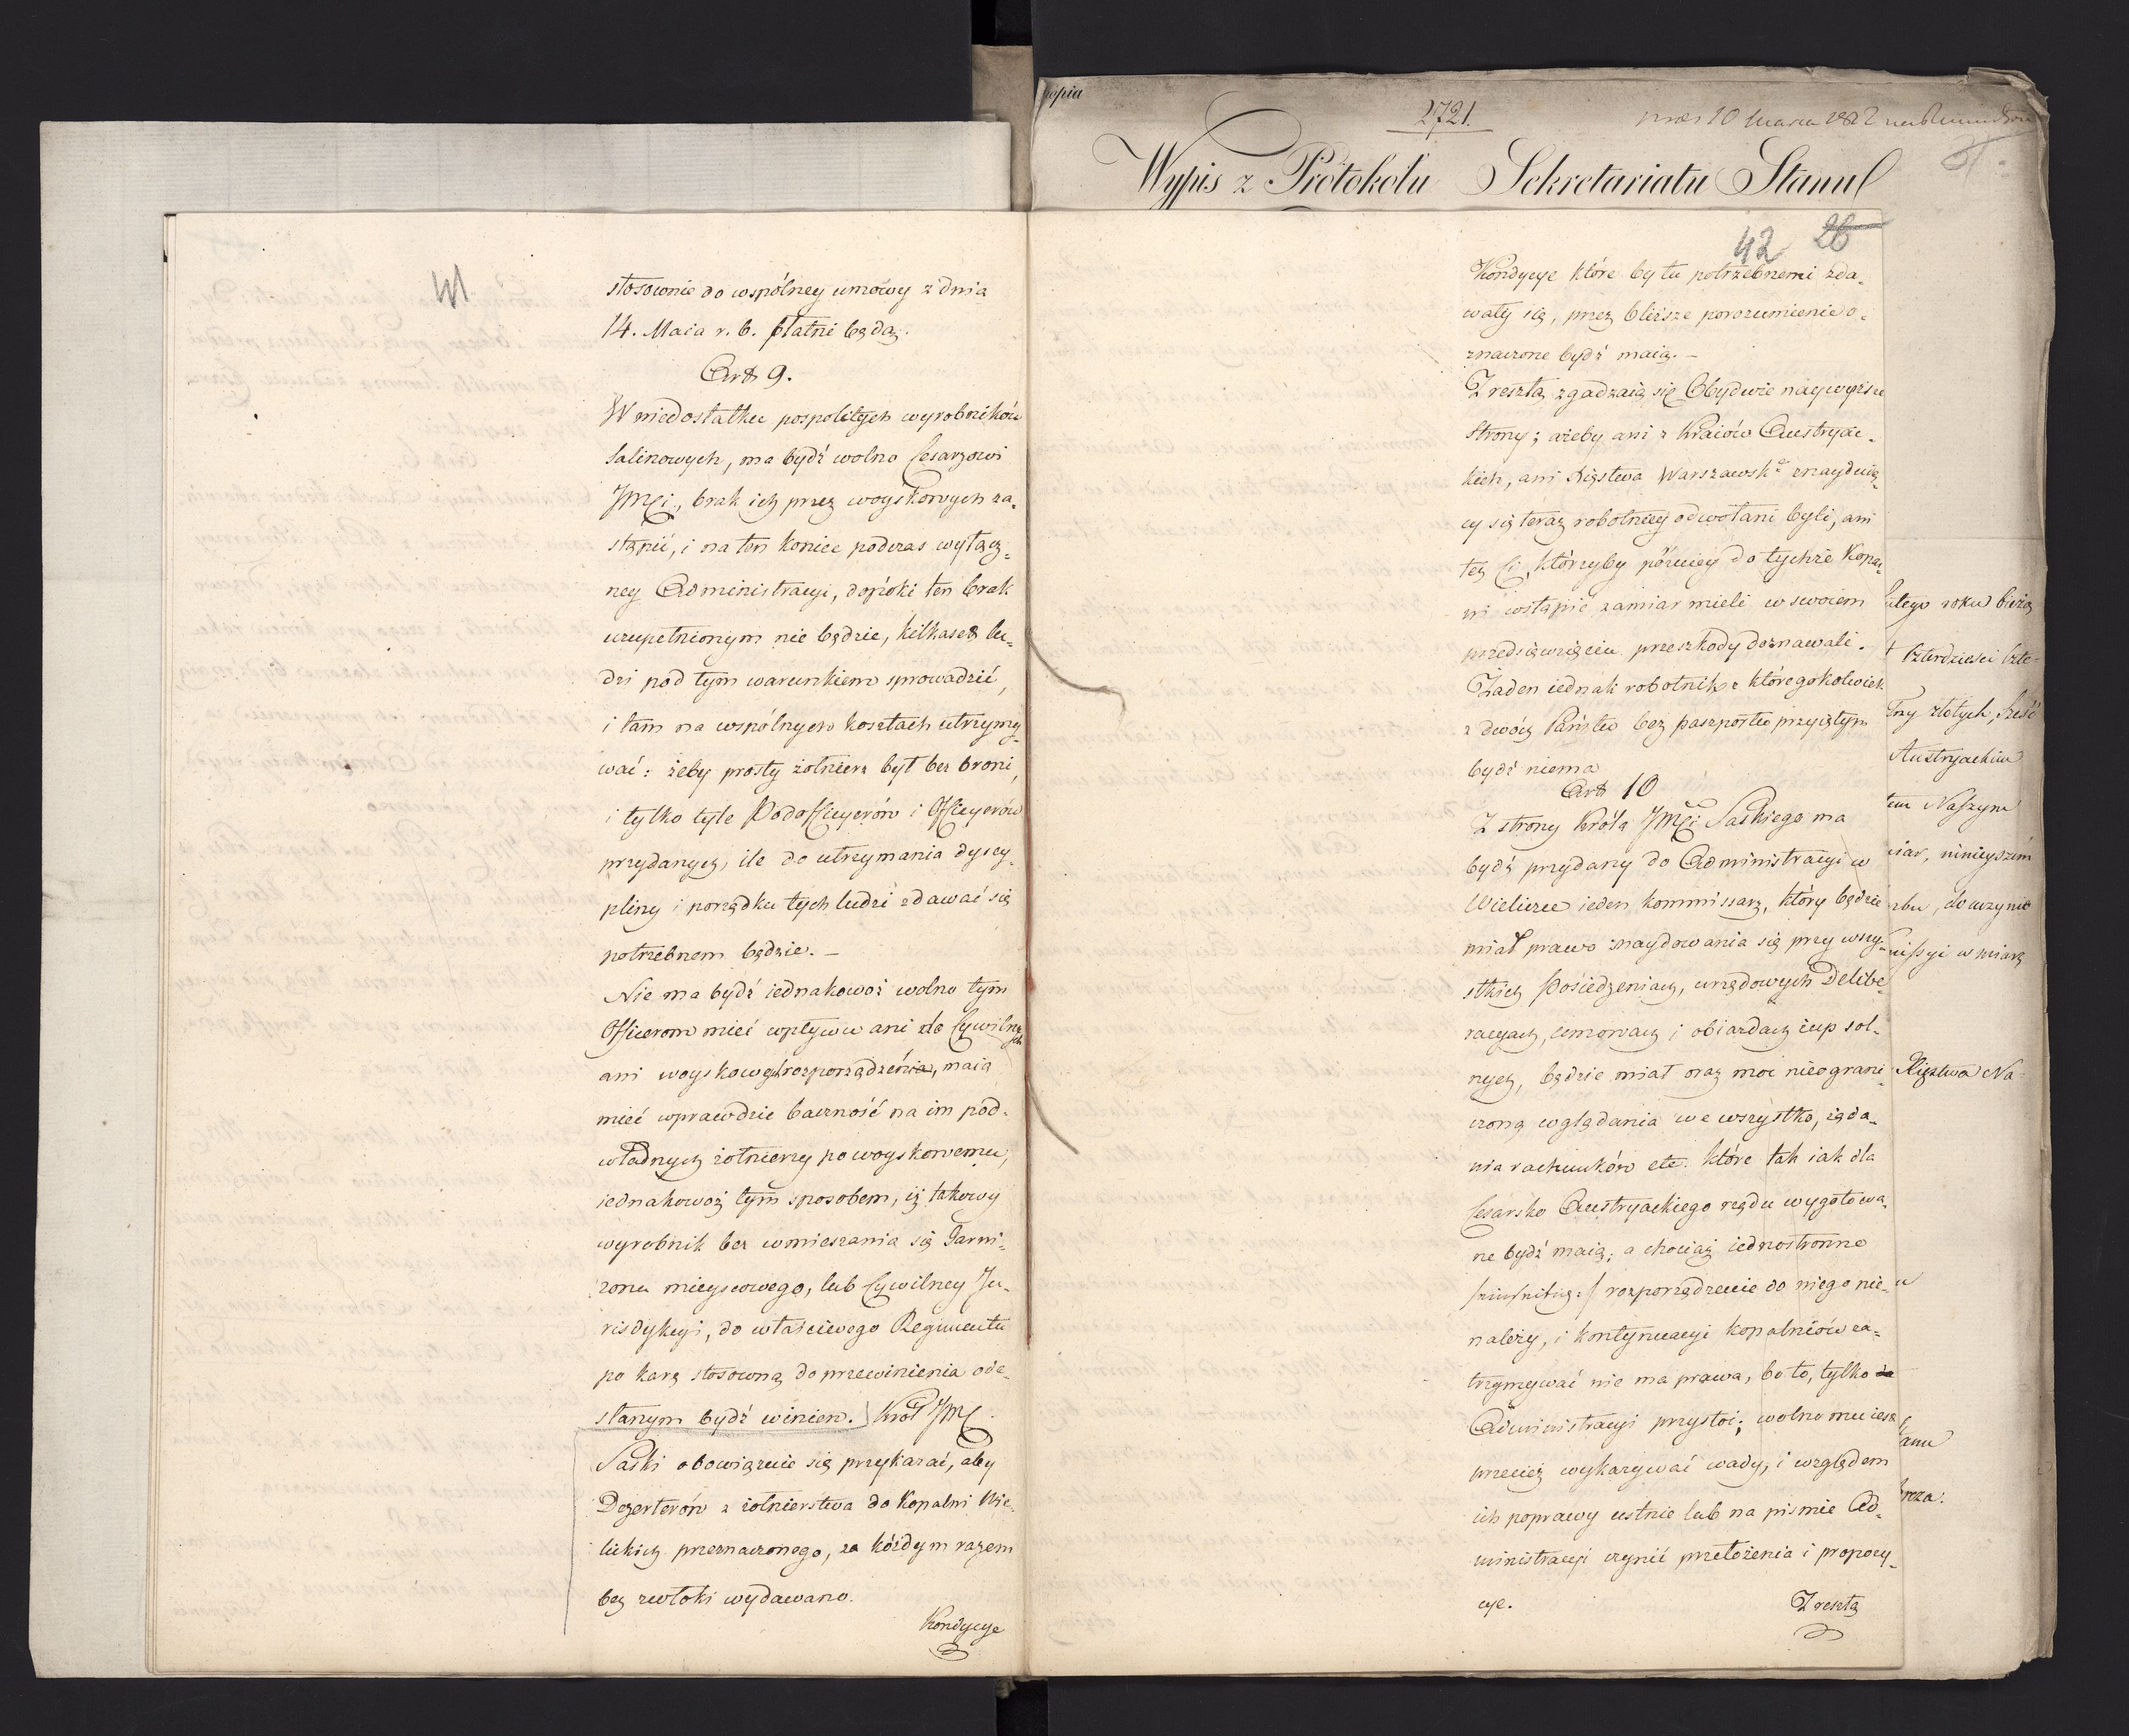 41
stosownie do wspólney umowy z dnia
14. Maia r. b. płatni będą.
Art 9.
W niedostatku pospolitych wyrobników
Salinowych, ma bydź wolno Cesarzowi
JMCi, brak ich przez woyskowych za-
stąpić, i na ten koniec podczas wyłącz-
ney Administracyi, dopóki ten brak
uzupełnionym nie będzie, kilkaset lu-
dzi pod tym warunkiem sprowadzić,
i tam na wspólnych kosztach utrzymy-
wać: żeby prosty żołnierz był bez broni,
i tylko tyle Podofficyerów i Officyerów
przydanych, ile do utrzymania dyscy-
pliny i porządku tych ludzi zdawać się
potrzebnem będzie. –
Nie ma bydź iednakowoż wolno tym
Officerom mieć wpływu ani do Cywilnych
ani woyskowych rozporządzenia, maią
mieć wprawdzie baczność na im pod-
władnych żołnierzy po woyskowemu,
iednakowoż tym sposobem, iż takowy
wyrobnik bez wmieszania się Garni-
zonu mieyscowego, lub Cywilney Ju-
risdykcyi, do właściwego Regimentu
po karę stosowną do przewinienia ode-
słanym bydź winien. Król JMC
Saski obowiązuie się przykazać, aby
Dezerterów z żołnierstwa do Kopalni Wie-
lickich przeznaczonego, za kóżdym razem
bez zwłoki wydawano.
Kondycye
kopia
2721.
praes 10 1812
Wypis z Protokołu Sekretariatu Stanu
42 26
Kondycye które by tu potrzebnemi zda-
wały się, przez bliższe porozumienie o-
znaczone bydź maią. –
Zresztą zgadzaią się Obydwie naywyższe
Strony; ażeby ani z Kraiów Austryac-
kich, ani Xięstwa Warszawsk° znayduią-
cy się teraz robotnicy odwołani byli, ani
też Ci, którzyby późniey do tychże Kopal-
ni wstąpić zamiar mieli w swoiem
przedsięwzięciu przeszkody doznawali.
Żaden iednak robotnik z któregokolwiek
z dwóch Państw bez paszportu przyiętym
bydź niema
Art 10
Z strony Króla JMCi Saskiego ma
bydź przydany do Administracyi w
Wieliczce ieden kommissarz, który będzie
miał prawo znaydowania się przy wszy-
stkich Posiedzeniach, urzędowych Delibe-
racyach, umowach i obiazdach żup sol-
nych, będzie miał oraz moc nieograni-
czoną wglądania we wszystko, żąda-
nia rachunków etc. które tak iak dla
Cesarsko Austryackiego rządu wygotowa-
ne bydź maią; a chociaż iednostronne
rozporządzenie do niego nie-
należy, i kontynuacyi kopalniów za-
trzymywać nie ma prawa, bo to, tylko
Administracyi przystoi; wolno mu iest
przecież wykazywać wady, i względem
ich poprawy ustnie lub na pismie Ad-
ministracyi czynić przełożenia i propozy-
cye.
Zresztą
utego roku bieżą
Czterdzieści Czte-
złotych, Sześć
Austryackim
Naszym
niniejszém
do uczynie
w miarę
Xięstwa Na-